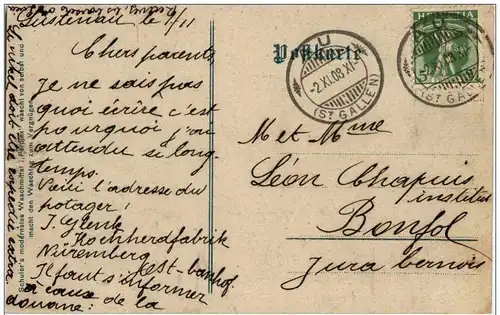 Lustenau le 1/11
Chers parents,
Je ne sais pas
quoi écrire c'est
pourquoi j'ai
attendu si long-
temps.
Voici l'adresse du
potager!
J. Glenk
Kochherdfabrik
Nüremberg
Ost-banhof
Il faut s'informer
à cause de la
douane:
Schuler's modernstes Waschmittel wascht von selber und
macht den Waschtag zum Vergnügen
Postkarte
AU
-2.XI.08.XI-
(ST GALLEN)
HELVETIA
AU
-2.XI.
(ST GALLEN)
M et Mme
Léon Chapuis
institut
Bonfol
Jura bernois